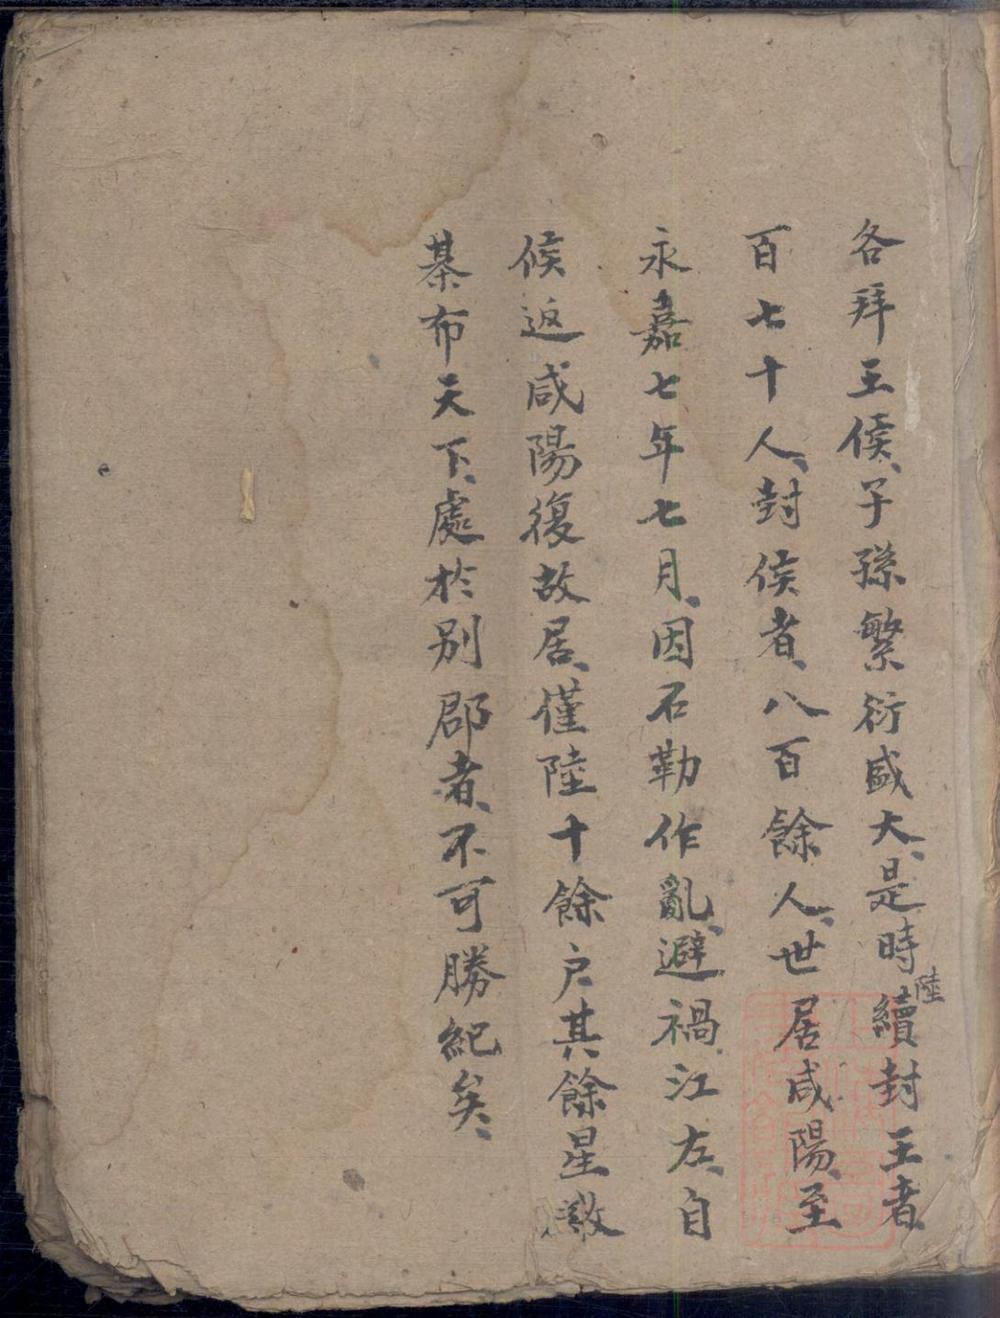 各拜王侯、子孫繁衍盛大、是時陸續封王者、
百七十人、封侯者、八百餘人、世居咸陽、至
永嘉七年七月、因石勒作亂、避禍江左、自
候返咸陽復故居、僅陸十餘户其餘星散
棊布天下、處於别郡者、不可勝紀矣、